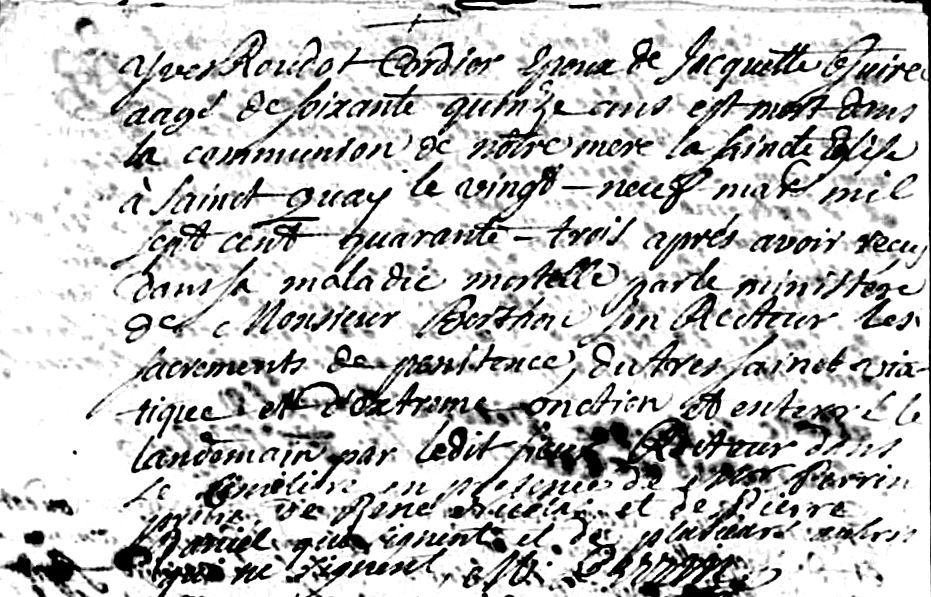 Yves Roudot Cordier Epoux de Jacquette
aagé de soixante quinze ans est mort dans
la communion de notre mere la sainte Eglise
à Sainct Quay le vingt - neuf mars mil
sept cent quarante - trois après avoir reçu
dans sa maladie mortelle par le ministere
de Monsieur Berthou son Recteur les
sacrements de penitence, du tres sainct via-
tique et d'Extreme onction et enterré le
landemain par ledit sieur Recteur dans
le cimetiere en presence de Perrin
de René Nicolas et de Pierre
Daniel qui signent et de plusieurs autres
qui ne signent,